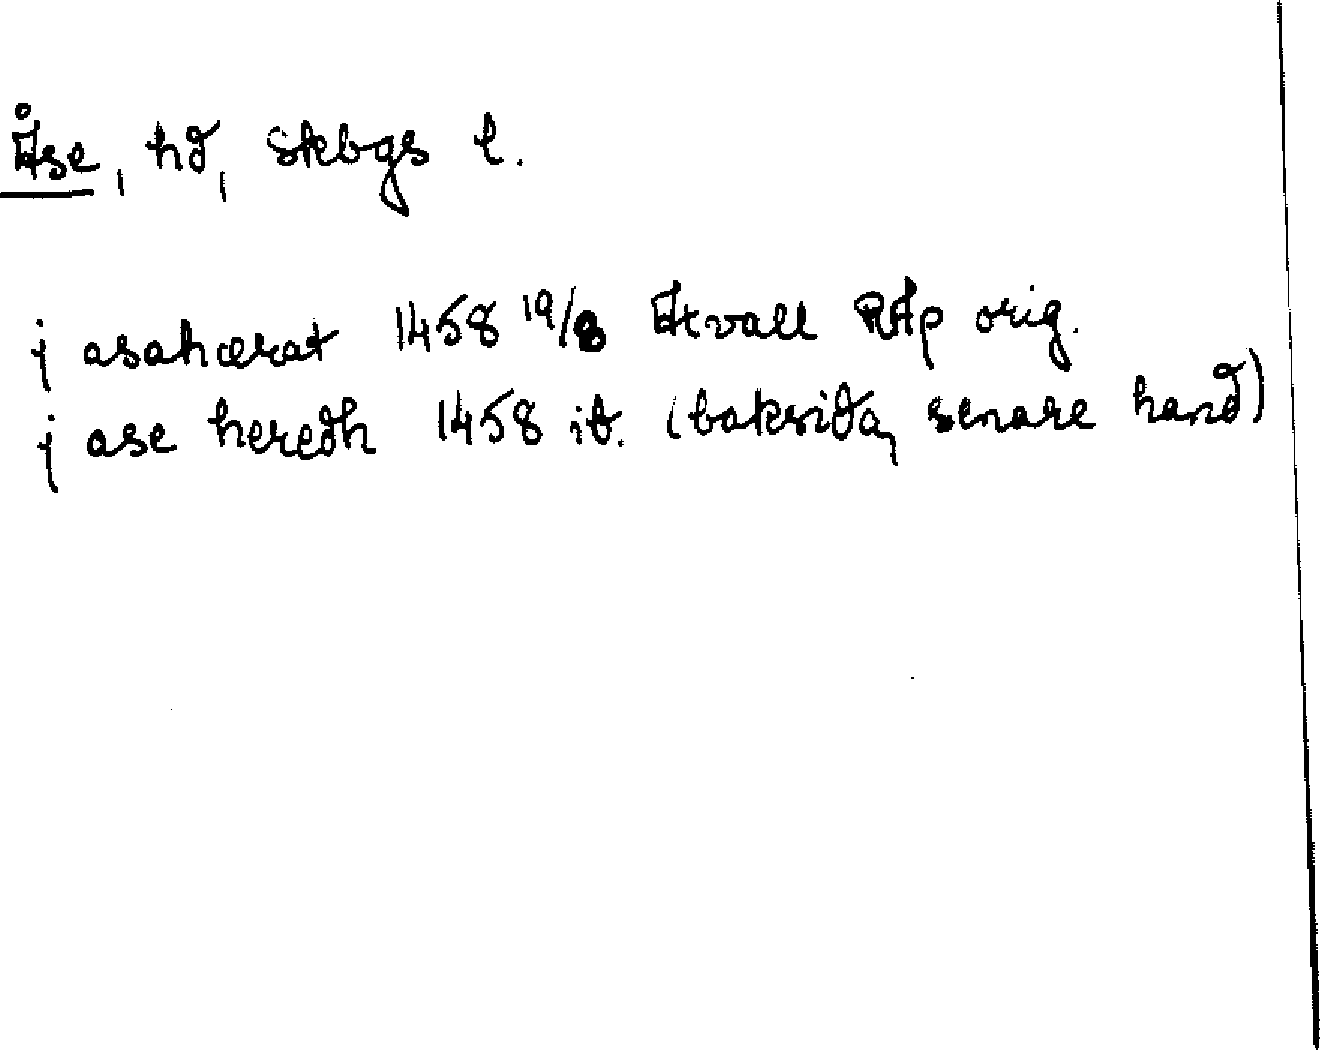 Åse, hd, Skbgs l.
j asahærat 1458 19/8 Atvall RAp orig.
j ase heredh 1458 ib. (baksida, senare hand)